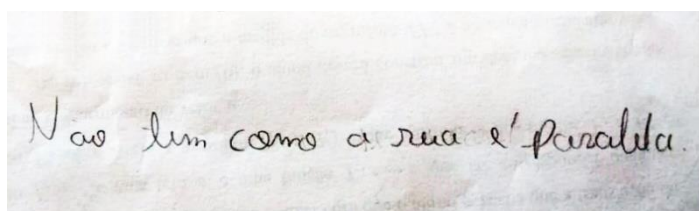 Nao tem como a rua é paralela.